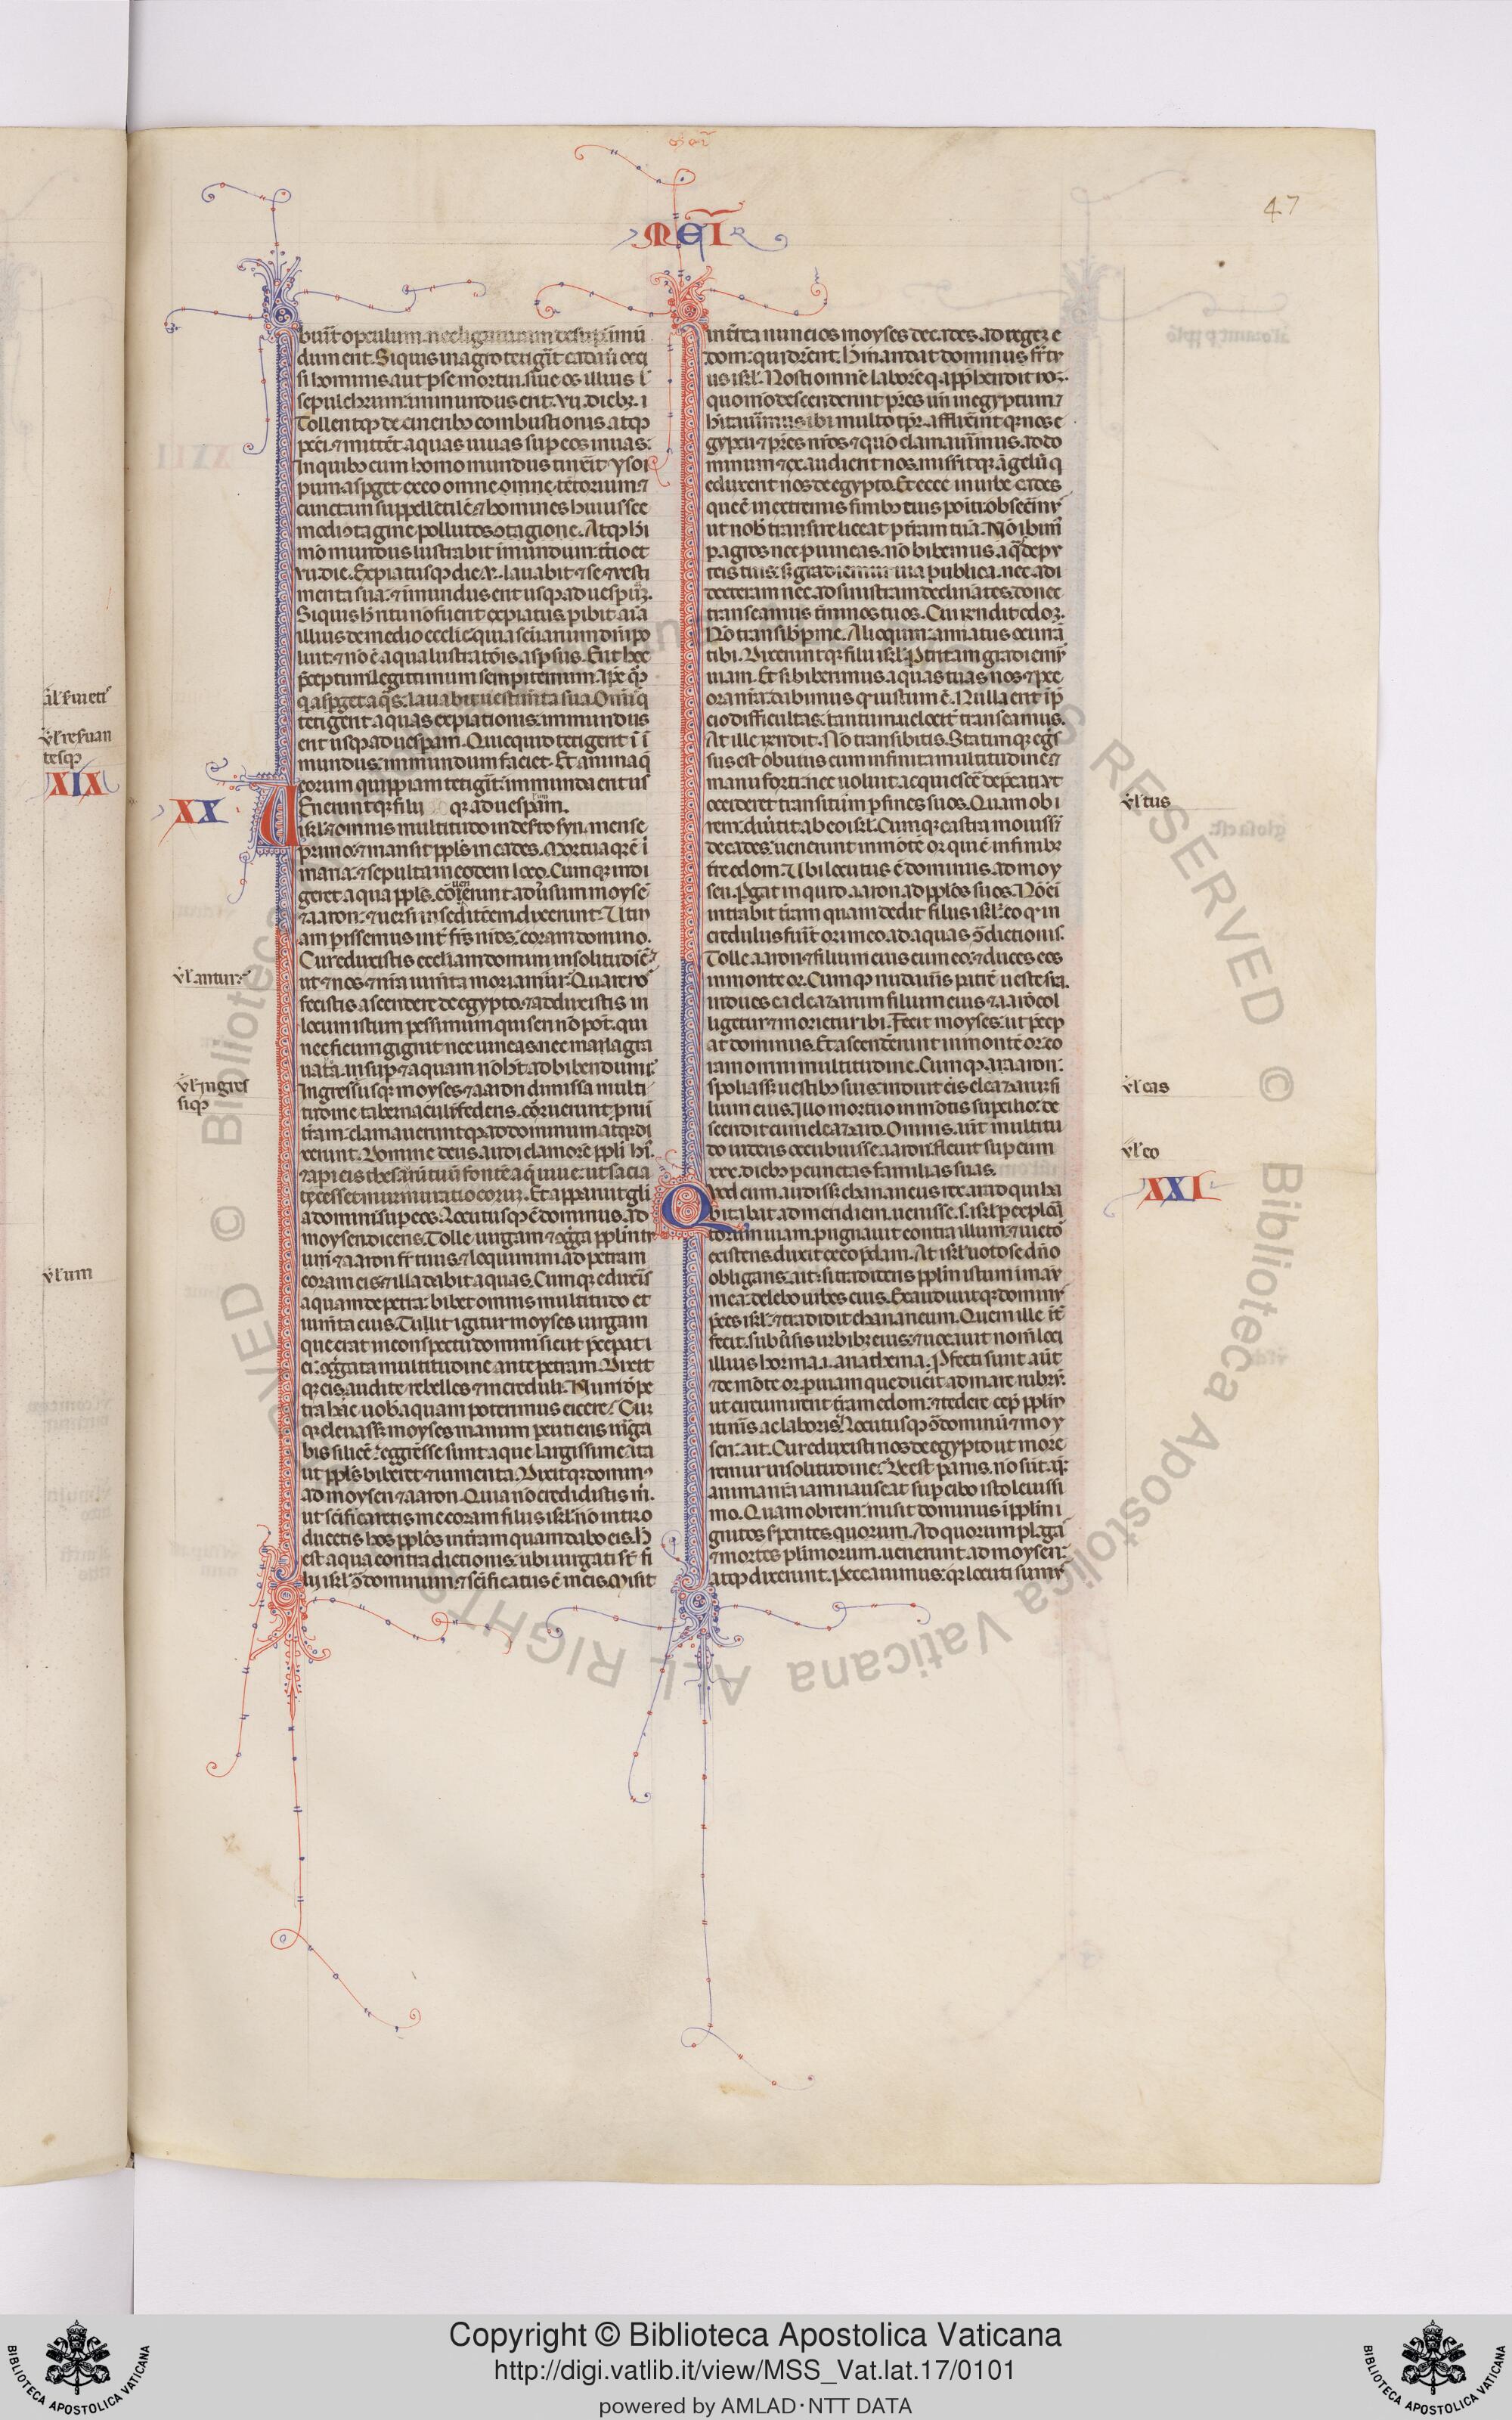 47
MERI
buit opculum. nec ligaturam desup. immū
dum erit. Si quis in agro tetigit cadau occi
si hominis. aut p se mortui. siue os illius l'
sepulchrum: immundus erit. vii. dieb. i
Tollentq de cineribo combustionis atq
peti. et mittēt aquas uiuas sup eos in uas:
in quibo cum homo mundus tinxerit ysop
pum: aspget ex eo omne. omne. tētorium. et
cunctam suppellectilē. et homines huiusce
modi ꝯtagine pollutos ꝯtagione. Atq hoc
mō mundus lustrabit īmundum: tertio et
vii. die. Expiatusq die .v. lauabit et se et vesti
menta sua. et īmundus erit usq ad uesperū.
Si quis h ritu nō fuerit expiatus. pibit aīa
illius de medio ecclie. quia scuarium dni po
luit. et nō ē aqua lustratōis aspsus. Erit hec
ceptum legitimum sempiternum. Ipe q
q aspget aqs. lauabit uestimta sua. Omis q
tetigerit aquas expiationis. immundus
erit usq ad uespam. Quicquid tetigerit ī ī
mundus: immundum faciet. Et anima q
eorum quippiam tetigit: immunda erit us
Enerunt qz filii q ad uespam.
isrl'. et omnis multitudo in desto syn. mense
primo. et mansit ppls in cades. Mortua qz ē ī
maria. et sepulta in eodem loco. Cumqz indi
geret aqua ppls. cōuenerunt aduersum moysē
et aaron. et uersi in seditōem. dixerunt. Utin
am pissemus int frs nrōs. coram domino.
Cur eduxistis ecclīam domini in solitudīē.
ut et nos. et nrā iumīta moriamur. Quare nos
fecistis ascendere de egypto. et adduxistis in
locum istum pessimum. qui seri nō pot. qui
nec ficum gignit nec uineas. nec malagra
nata. insup. et aquam nō ht ad bibendum.
Ingressusq moyses. et aaron dimissa multi
tudine tabernaculū federis. corruerunt pni ī
tiram. clamaueruntq ad dominum atq di
xerunt. Domine deus. audi clamorē ppli hui.
et aperi eis thesaurū tuū fontē aq uiue. ut sacia
ti cesset murmuratio eorum. Et apparuit gli
a domini sup eos. Locutusq ē dominus. ad
moysen dicens. Tolle uirgam. et ꝯgrega pplm tu
um. et aaron fr tuus. et loquimini ad petram
coram eis. et illa dabit aquas. Cumqz eduxis
aquam de petra: bibet omnis multitudo et
iumīta eius. Tulit igitur moyses uirgam
que erat in conspectu domini sicut pcepat i
ei. ꝯgregata multitudine ante petram. Dixit
qz eis. audite rebelles. et increduli. Num de pe
tra hac uob aquam poterimus eicere. Cūr
qz eleuass moyses manum. peutiens uirga
bis silicē: egresse sunt aque largissime. ita
ut ppls biberet. et iumenta. Dixitqz domin
ad moysen. et aaron. Quia nō credidistis m.
ut scificaretis me coram filiis isrl'. nō intro
ducetis hos pplos in tiram quam dabo eis. H
est aqua contradictionis. ubi iurgati st fi
lij isrl' ꝯ dominum. et scificatus ē in eis. Misit
interea nuncios moyses de cades. ad regem e
dom: qui dicerent. Hec mandat dominus fr tu
us isrl'. Nosti omnē laborē q apphendit nos.
quomō descenderint pres nri in egyptum. et
hitauimus ibi multo tpr. afflixerint qz nos e
gyptii. et pres nros. et quō clamauimus. ad do
minum. et exaudierit nos. misseritqz āgelū q
eduxerit nos de egypto. Et ecce in urbe cades
que ē in extremis finibo tuis positi obsecramus
ut nob transire liceat p tiram tuā. Nō ibim
p agros. nec p uineas. nō bibemus. aq de pu
teis tuis. s gradiemur uia publica. nec ad i
dexteram nec ad sinistram declinātes. donec
transeamus tminos tuos. Cui rndit edom.
Nō transib p me. Alioquin: armatus occurā
tibi. Dixeruntqz filii isrl'. P tritam gradiemur
uiam. Et si biberimus aquas tuas nos. et pec
ora nra: dabimus q iustum ē. Nulla erit ip
cio difficultas. tantum uelocit transeamus.
At ille rndit. Nō transibitis. Statimqz egs
sus est obuius cum infinita multitudine. et
manu forti. nec uoluit acquiescē deprecāti. ut
cocederet transitum p fines suos. Quam ob i
rem: diūtit ab eo isrl'. Cumqz castra mouiss
de cades. uenerunt in mōtē or qui ē in finib
tre edom. Ubi locutus ē dominus. ad moy
sen. Pgat inquid. aaron. ad pplōs suos. Nō ei
intrabit tram quam dedit filiis isrl'. eo q in
credulus fuit ori meo. ad aquas ꝯdictionis.
Tolle aaron. et filium eius cum eo. et duces eos
in monte or. Cumq nudaūis patrē ueste sua.
indues ea eleazarum filium eius. et aarō col
ligetur. et morietur ibi. Fecit moyses. ut pcep
at dominus. Et ascenderunt in montē or co
ram omni multitudine. Cumq aaron:
spoliass uestibo suis. induit eis eleazarum fi
lium eius. Illo mortuo in mōtis supcilio. de
scendit cum eleazaro. Omnis. aut multitu
do uidens occubuisse aaron. fleuit sup eum
xxx. dieb p cunctas familias suas.
Qvod cum audiss chananeus rex arad qui ha
bitabat ad meridiem. uenisse. s. isrl' p explora
torum uiam. pugnauit contra illum. et uicto
existens. duxit ex eo pdam. At isrl' uoto se dno
obligans. ait. si tradideris pplm istum ī manu
mea: delebo urbes eius. Exaudiuitqz dominus
pces isrl'. et tradidit chananeum. Quem ille īt
fecit. subūsis urbibz eius. et uocauit nom loci
illius horma .i. anathema. Pfecti sunt aūt
et de mōte or. p uiam que ducit ad mare rubrū.
ut circumirent tram edom. et tedere cep pplm
itinis ac laboris. Locutusq ꝯ dominū. et moy
sen: ait. Cur eduxisti nos de egypto ut more
remur in solitudine. Deest panis. nō sūt aq.
anima nra iam nauseat sup cibo isto leuissi
mo. Quam obrem: misit dominus ī pplm i
gnitos spentes. quorum. Ad quorum plagā
et mortes plimorum. uenerunt ad moysen:
atq dixerunt. Peccauimus: qr locuti sumus
ul' tesuan
tesq
XIX
XX
ul' antur
ul' ingres
siq
ul' um
ul' tus
ul' eas
ul' eo
XXI
Copyright © Biblioteca Apostolica Vaticana
http://digi.vatlib.it/view/MSS_Vat.lat.17/0101
powered by AMLAD·NTT DATA
BIBLIOTECA APOSTOLICA VATICANA
BIBLIOTECA APOSTOLICA VATICANA
© Biblioteca Apostolica Vaticana ALL RIGHTS RESERVED